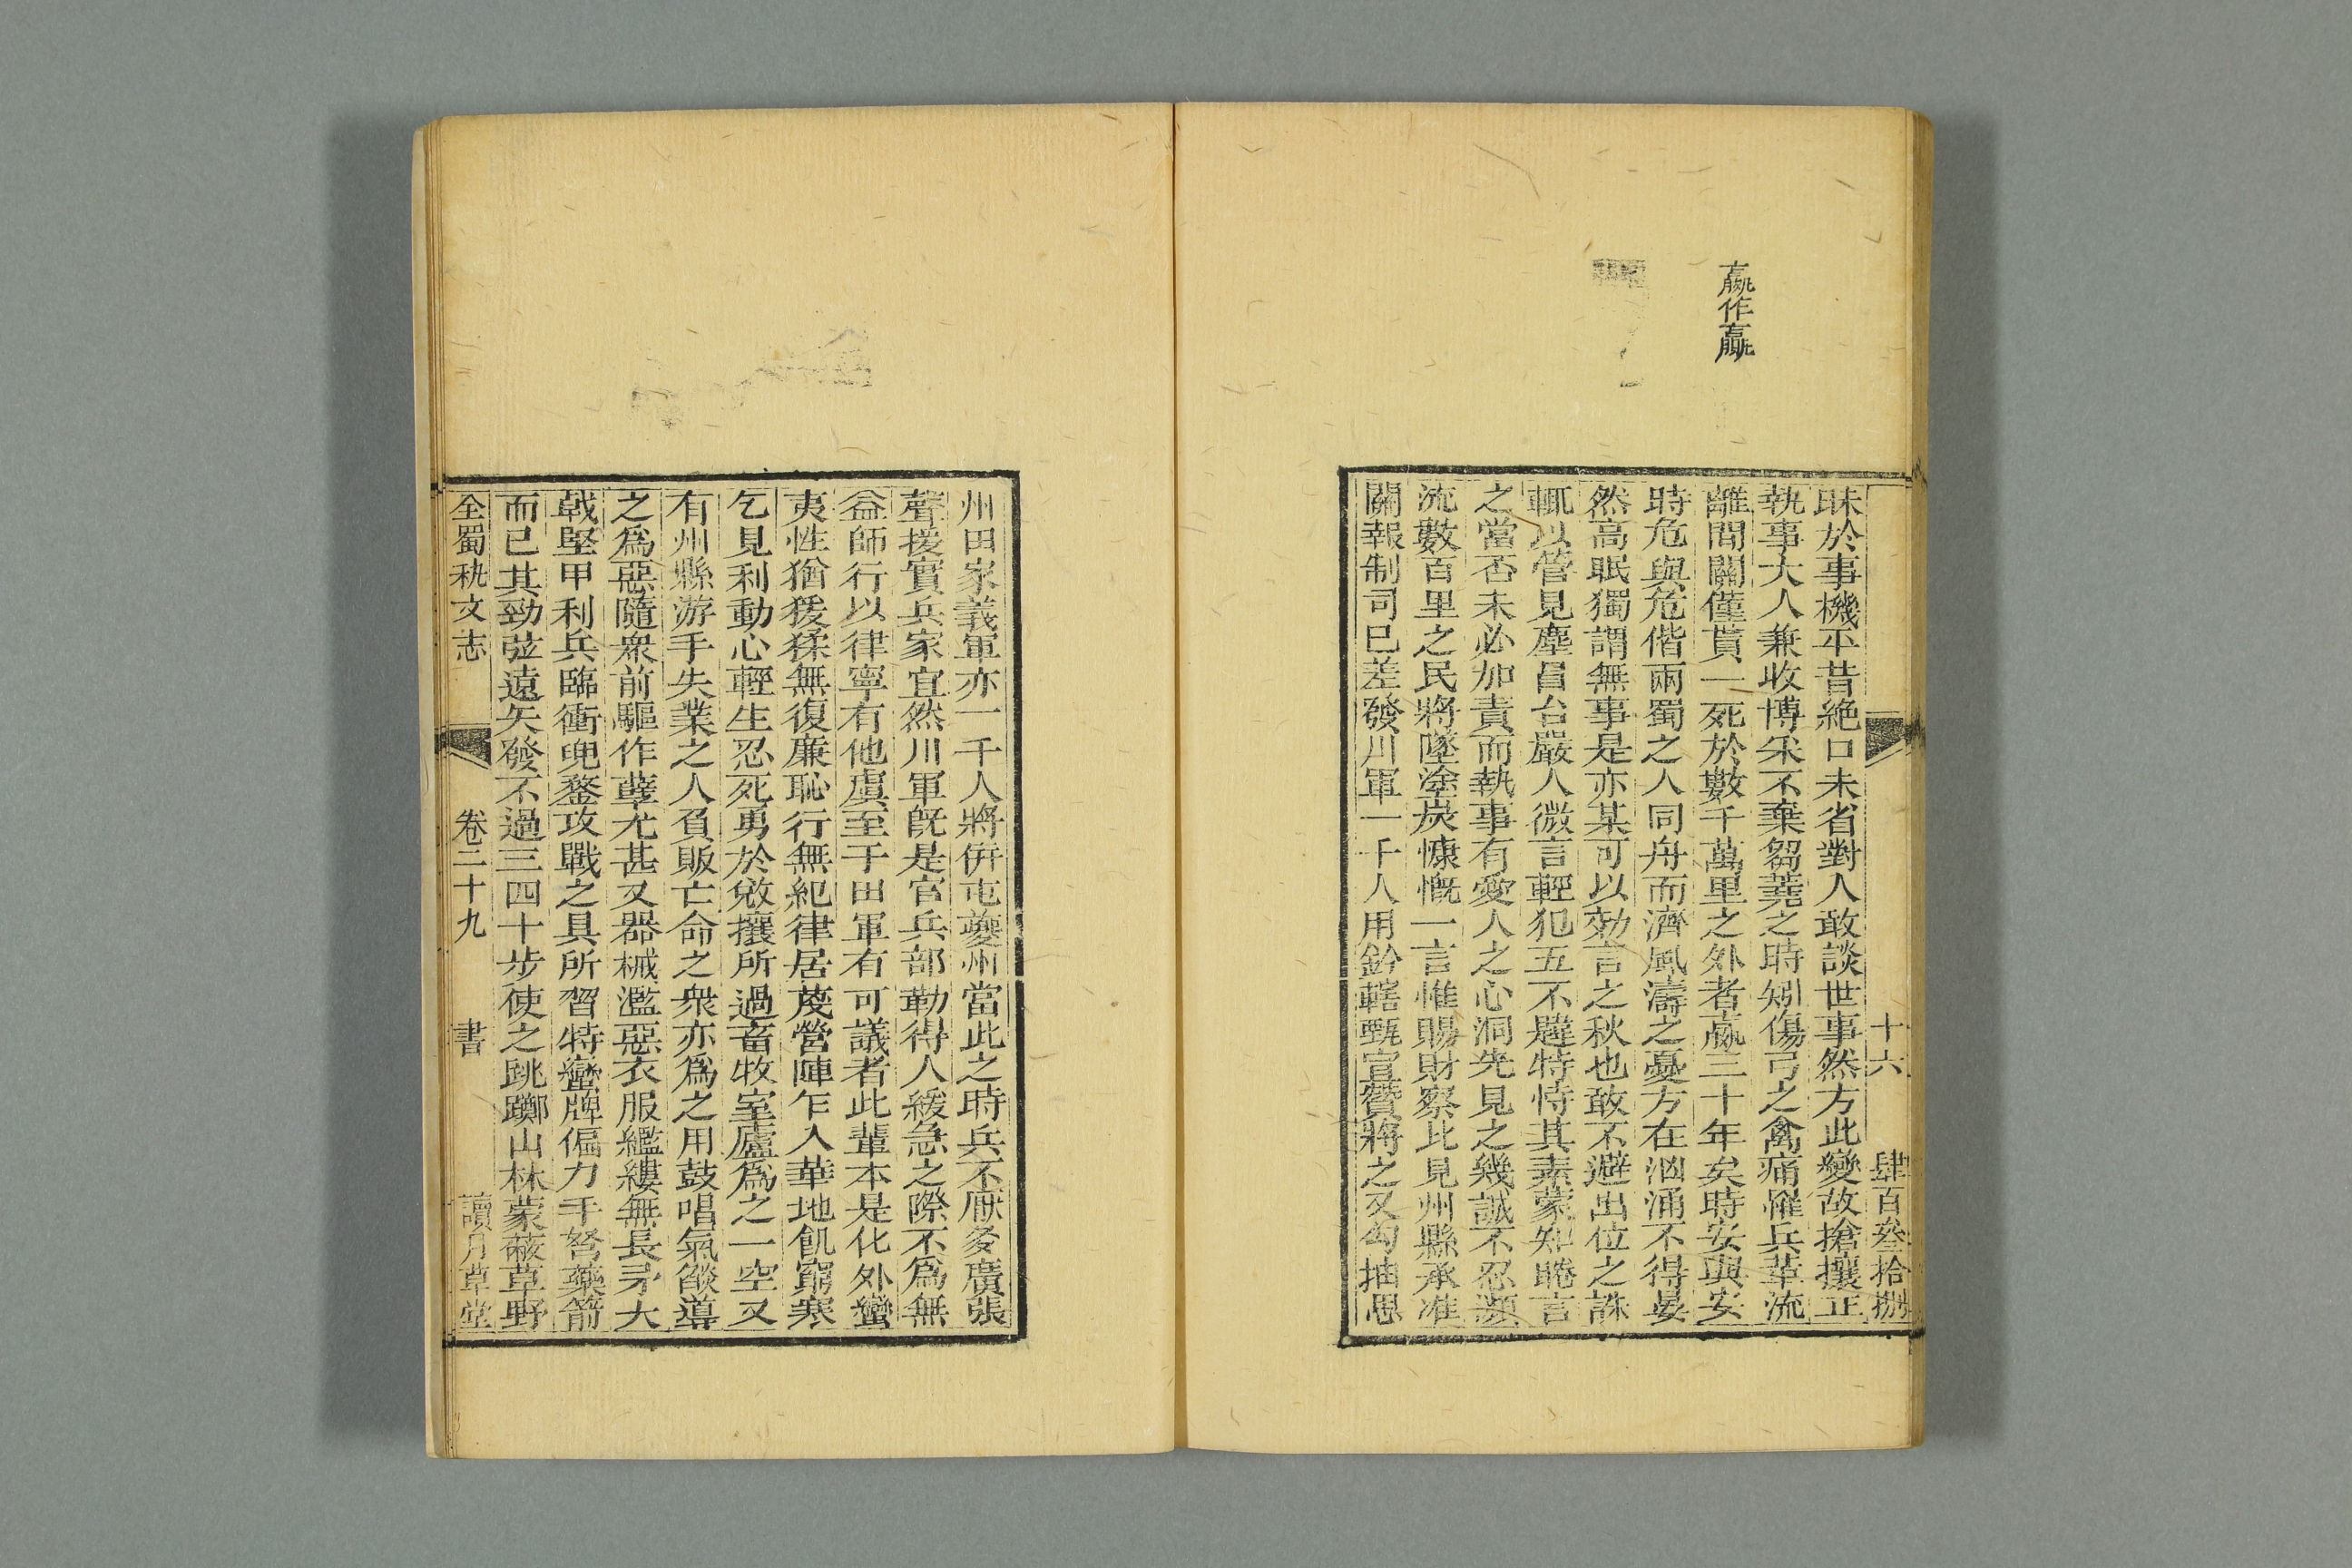 嬴作贏
十六
肆百叁拾捌
昧於事機平昔絶口未省對人敢談世事然方此變故搶攘正
執事大人兼收博采不棄芻蕘之時矧傷弓之禽痛罹兵革流
離間關僅貰一死於數千萬里之外者嬴三十年矣時安與安
時危與危偕兩蜀之人同舟而濟風濤之憂方在洶涌不得晏
然高眠獨謂無事是亦某可以効言之秋也敢不避出位之誅
輒以管見塵昌台嚴人微言輕犯五不韙特恃其素蒙知睠言
之當否未必加責而執事有愛人之心洞先見之幾誠不忍頮
流數百里之民將墜塗炭慷慨一言惟賜財察比見州縣承准
關報制司已差發川軍一千人用鈐轄甄宣贊將之又勾抽思
州田家義軍亦一千人將併屯夔州當此之時兵不厭多廣張
聲援實兵家宜然川軍旣是官兵部勒得人緩急之際不爲無
益師行以律寧有他虞至于田軍有可議者此輩本是化外蠻
夷性猶猨猱無復廉恥行無紀律居蔑營陣乍入華地飢窮寒
乞見利動心輕生忍死勇於敓攘所過畜牧室廬爲之一空又
有州縣游手失業之人負販亡命之衆亦爲之用鼓唱氣燄導
之爲惡隨衆前驅作孽尤甚又器械濫惡衣服繿縷無長矛大
戟堅甲利兵臨衝兜鍪攻戰之具所習特蠻牌偏刀千弩藥箭
而已其勁弦遠矢發不過三四十步使之跳躑山林蒙蔽草野
全蜀秇文志
卷二十九
書
讀月草堂